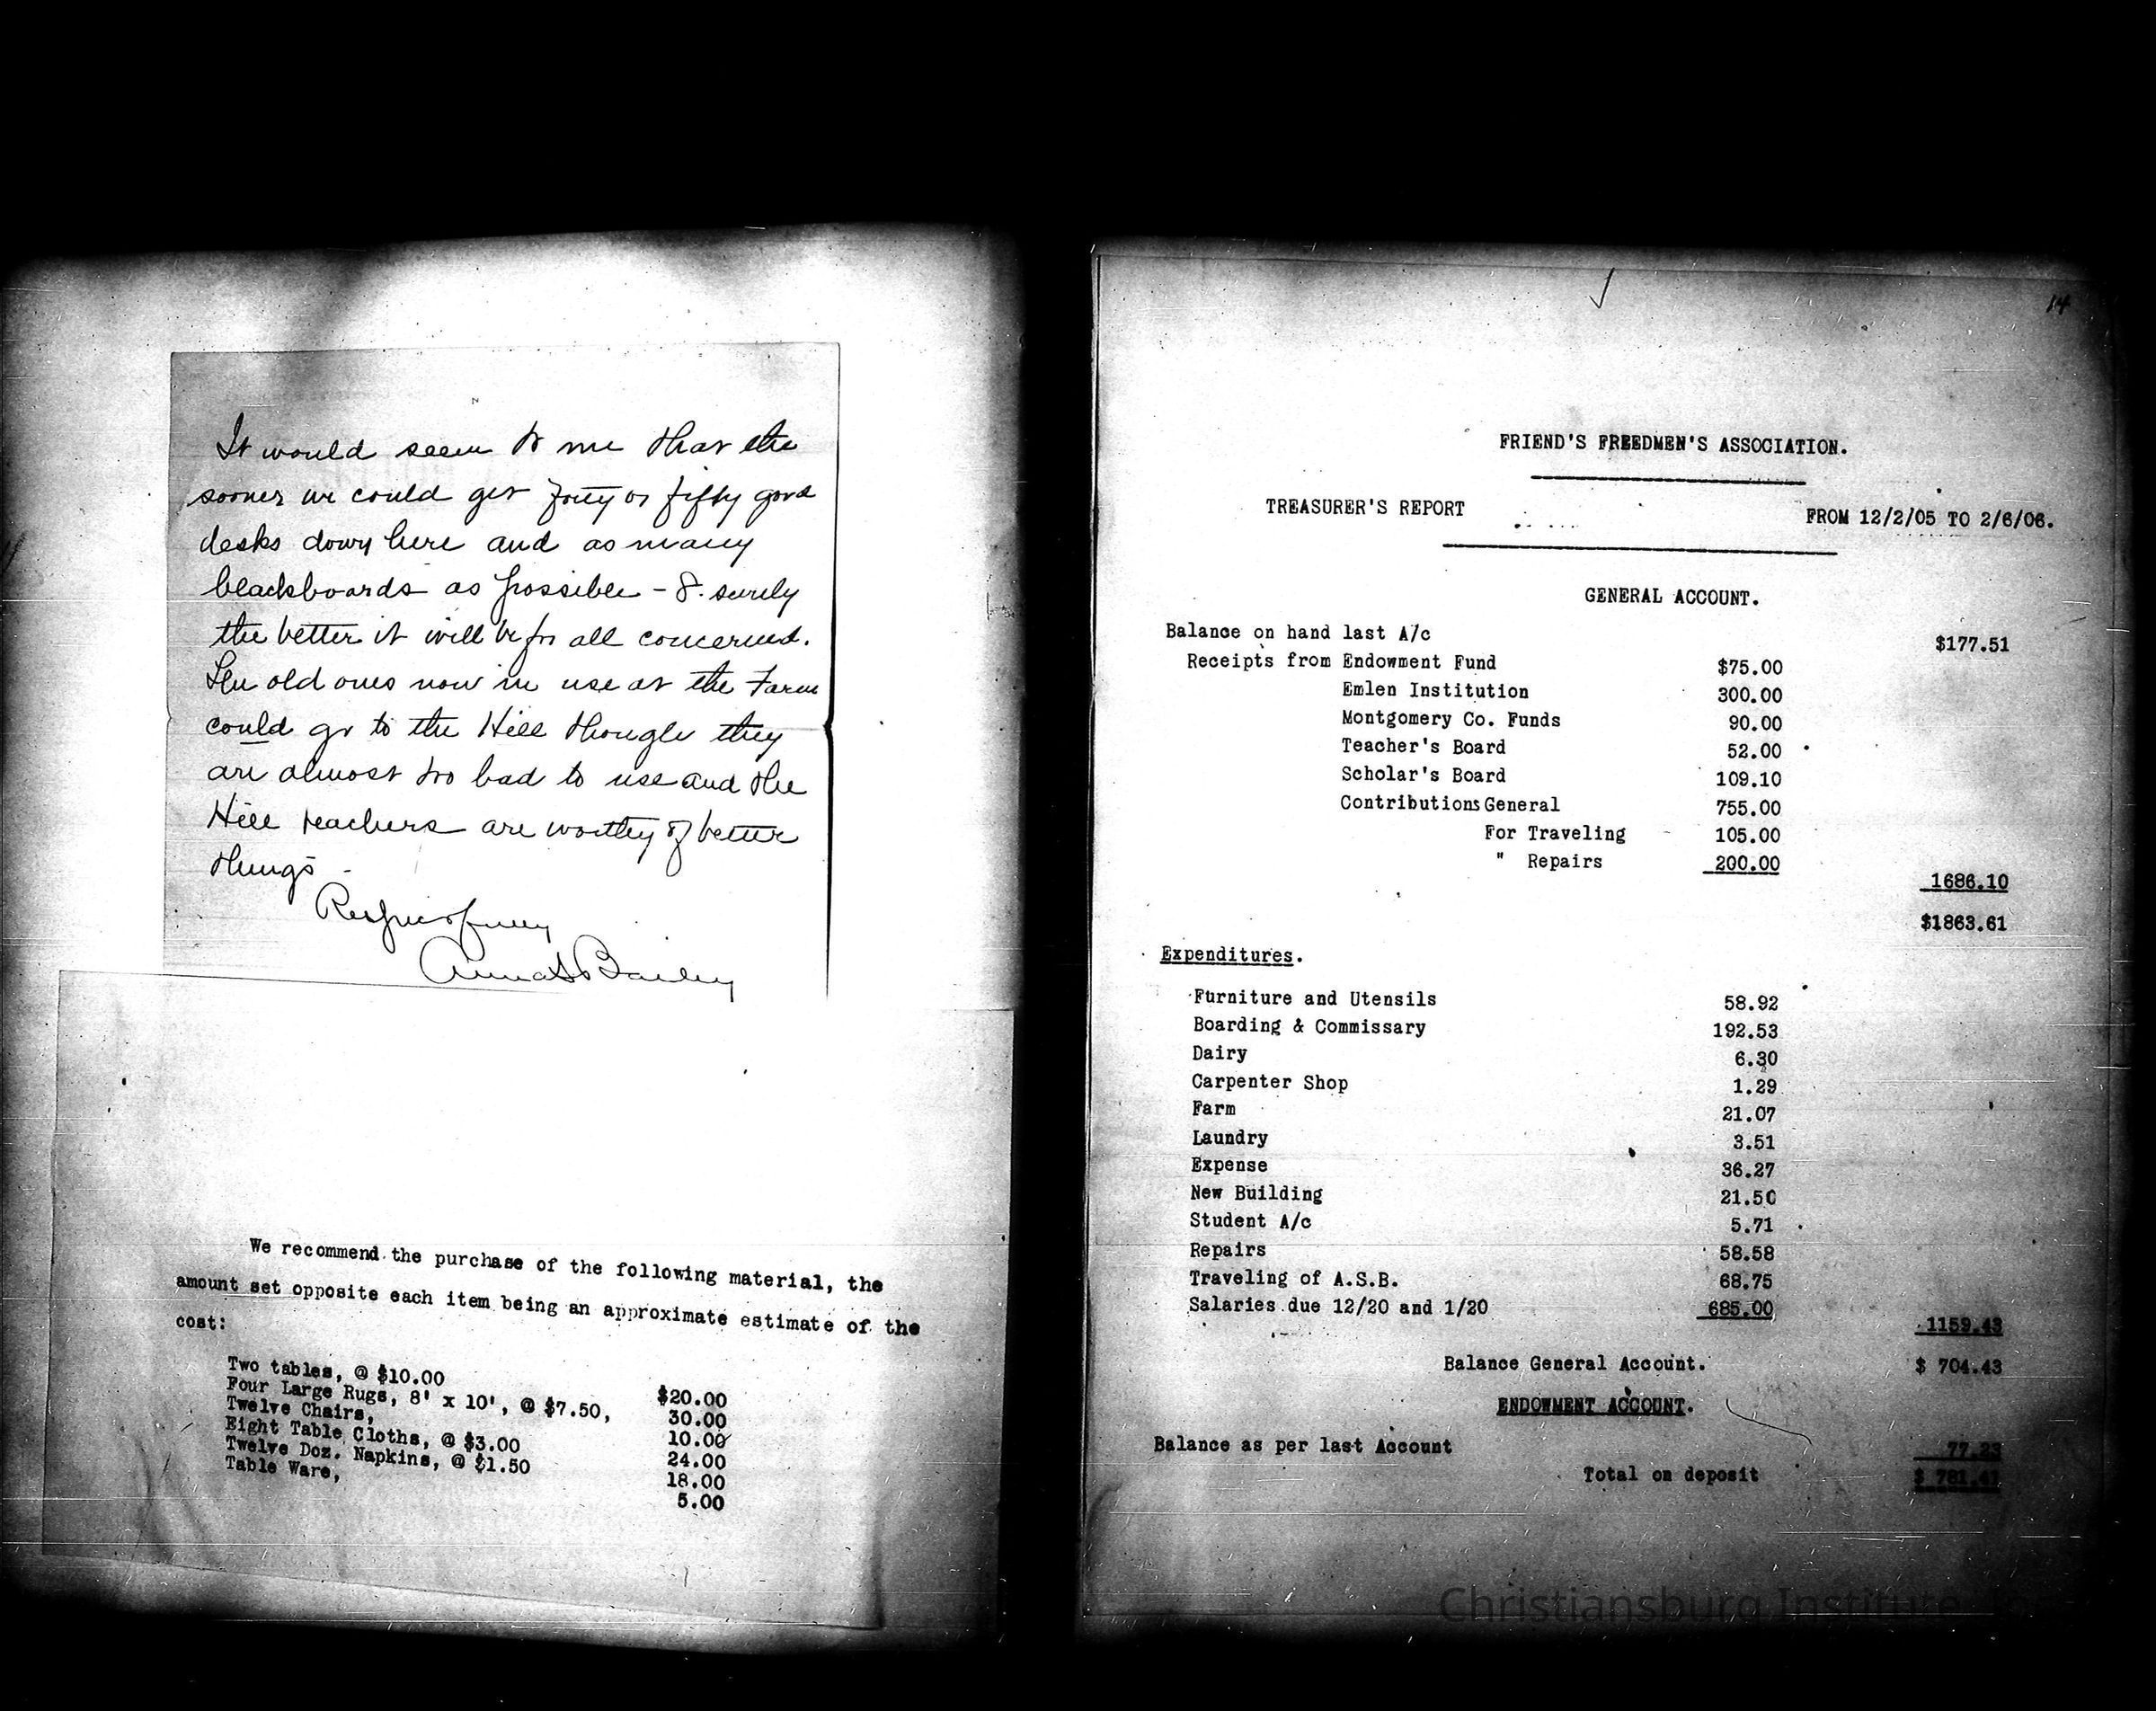 It would seem to me that the
sooner we could get forty or fifty good
desks down here and as many
blackboards as possible - 8. surely
the better it will be for all concerned.
Ten old ones now in use at the Farm
could go to the Hill though they
are almost too bad to use and the
Hill teachers are worthy of better
things -
Respectfully
Anna S Bailey
We recommend the purchase of the following material, the
amount set opposite each item being an approximate estimate of the
cost:
Two tables, @ $10.00 $20.00
Four Large Rugs, 8' x 10', @ $7.50, 30.00
Twelve Chairs, 10.00
Eight Table Cloths, @ $3.00 24.00
Twelve Doz. Napkins, @ $1.50 18.00
Table Ware, 5.00
14
FRIEND'S FREEDMEN'S ASSOCIATION.
TREASURER'S REPORT FROM 12/2/05 TO 2/6/06.
GENERAL ACCOUNT.
Balance on hand last A/c $177.51
Receipts from Endowment Fund $75.00
Emlen Institution 300.00
Montgomery Co. Funds 90.00
Teacher's Board 52.00
Scholar's Board 109.10
Contributions General 755.00
For Traveling 105.00
" Repairs 200.00
1686.10
$1863.61
Expenditures.
Furniture and Utensils 58.92
Boarding & Commissary 192.53
Dairy 6.30
Carpenter Shop 1.29
Farm 21.07
Laundry 3.51
Expense 36.27
New Building 21.50
Student A/c 5.71
Repairs 58.58
Traveling of A.S.B. 68.75
Salaries due 12/20 and 1/20 685.00
1159.43
Balance General Account. $ 704.43
ENDOWMENT ACCOUNT.
Balance as per last Account 77.23
Total on deposit $ 781.41
Christiansburg Institute